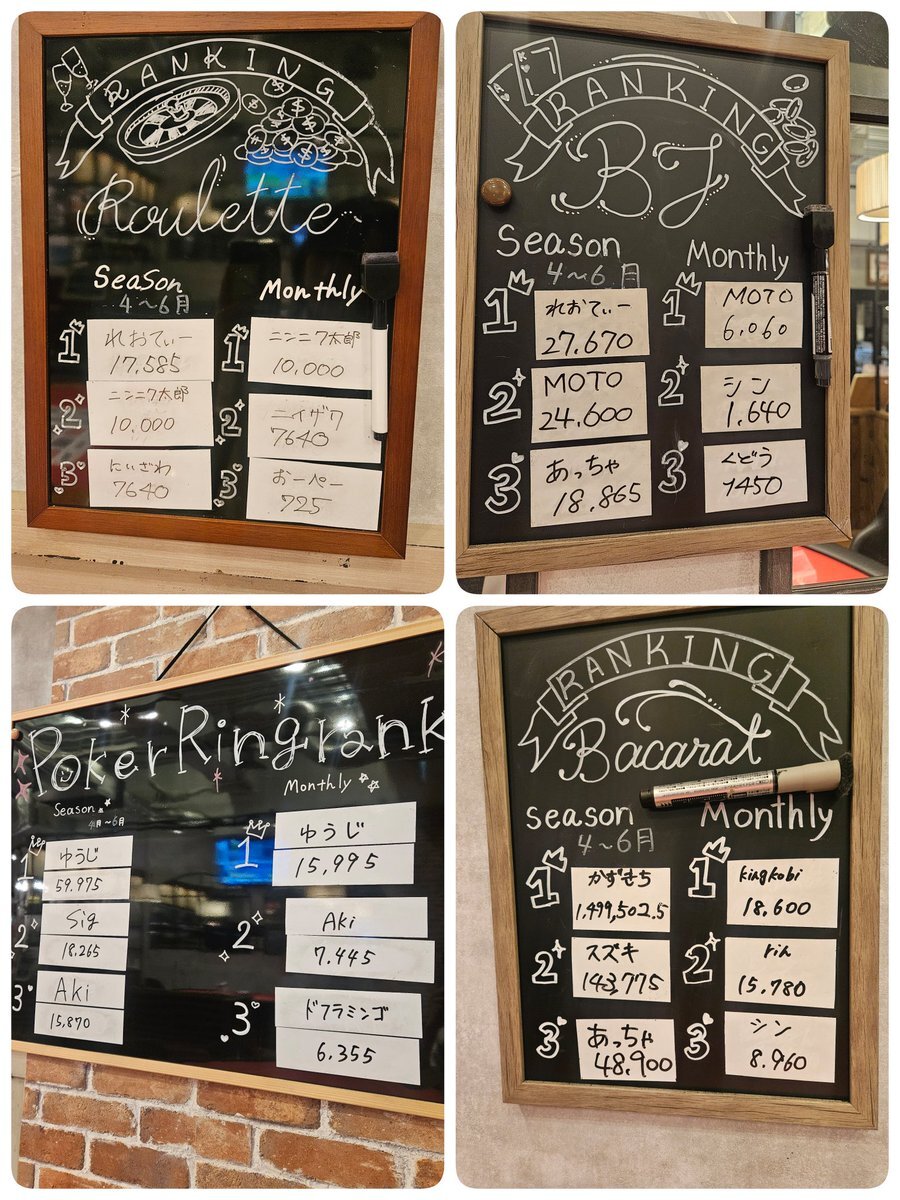 RANKING
Roulette
Season
4～6月
1
れおてぃー
17,585
2
ニンニク太郎
10,000
3
にいざわ
7640
Monthly
1
ニンニク太郎
10,000
2
ニイザワ
7640
3
おーぺー
725
RANKING
BJ
Season
4～6月
1
れおてぃー
27,670
2
MOTO
24,600
3
あっちゃ
18,865
Monthly
1
MOTO
6,060
2
シン
1,640
3
くどう
1450
Poker Ring rank
Season
4月～6月
1
ゆうじ
59,975
2
Sig
18,265
3
Aki
15,870
Monthly
1
ゆうじ
15,995
2
Aki
7,445
3
ドフラミンゴ
6,355
RANKING
Bacarat
Season
4～6月
1
かずせち
1,499,502.5
2
スズキ
143,775
3
あっちゃ
48,900
Monthly
1
kingkobi
18,600
2
rin
15,780
3
シン
8,960